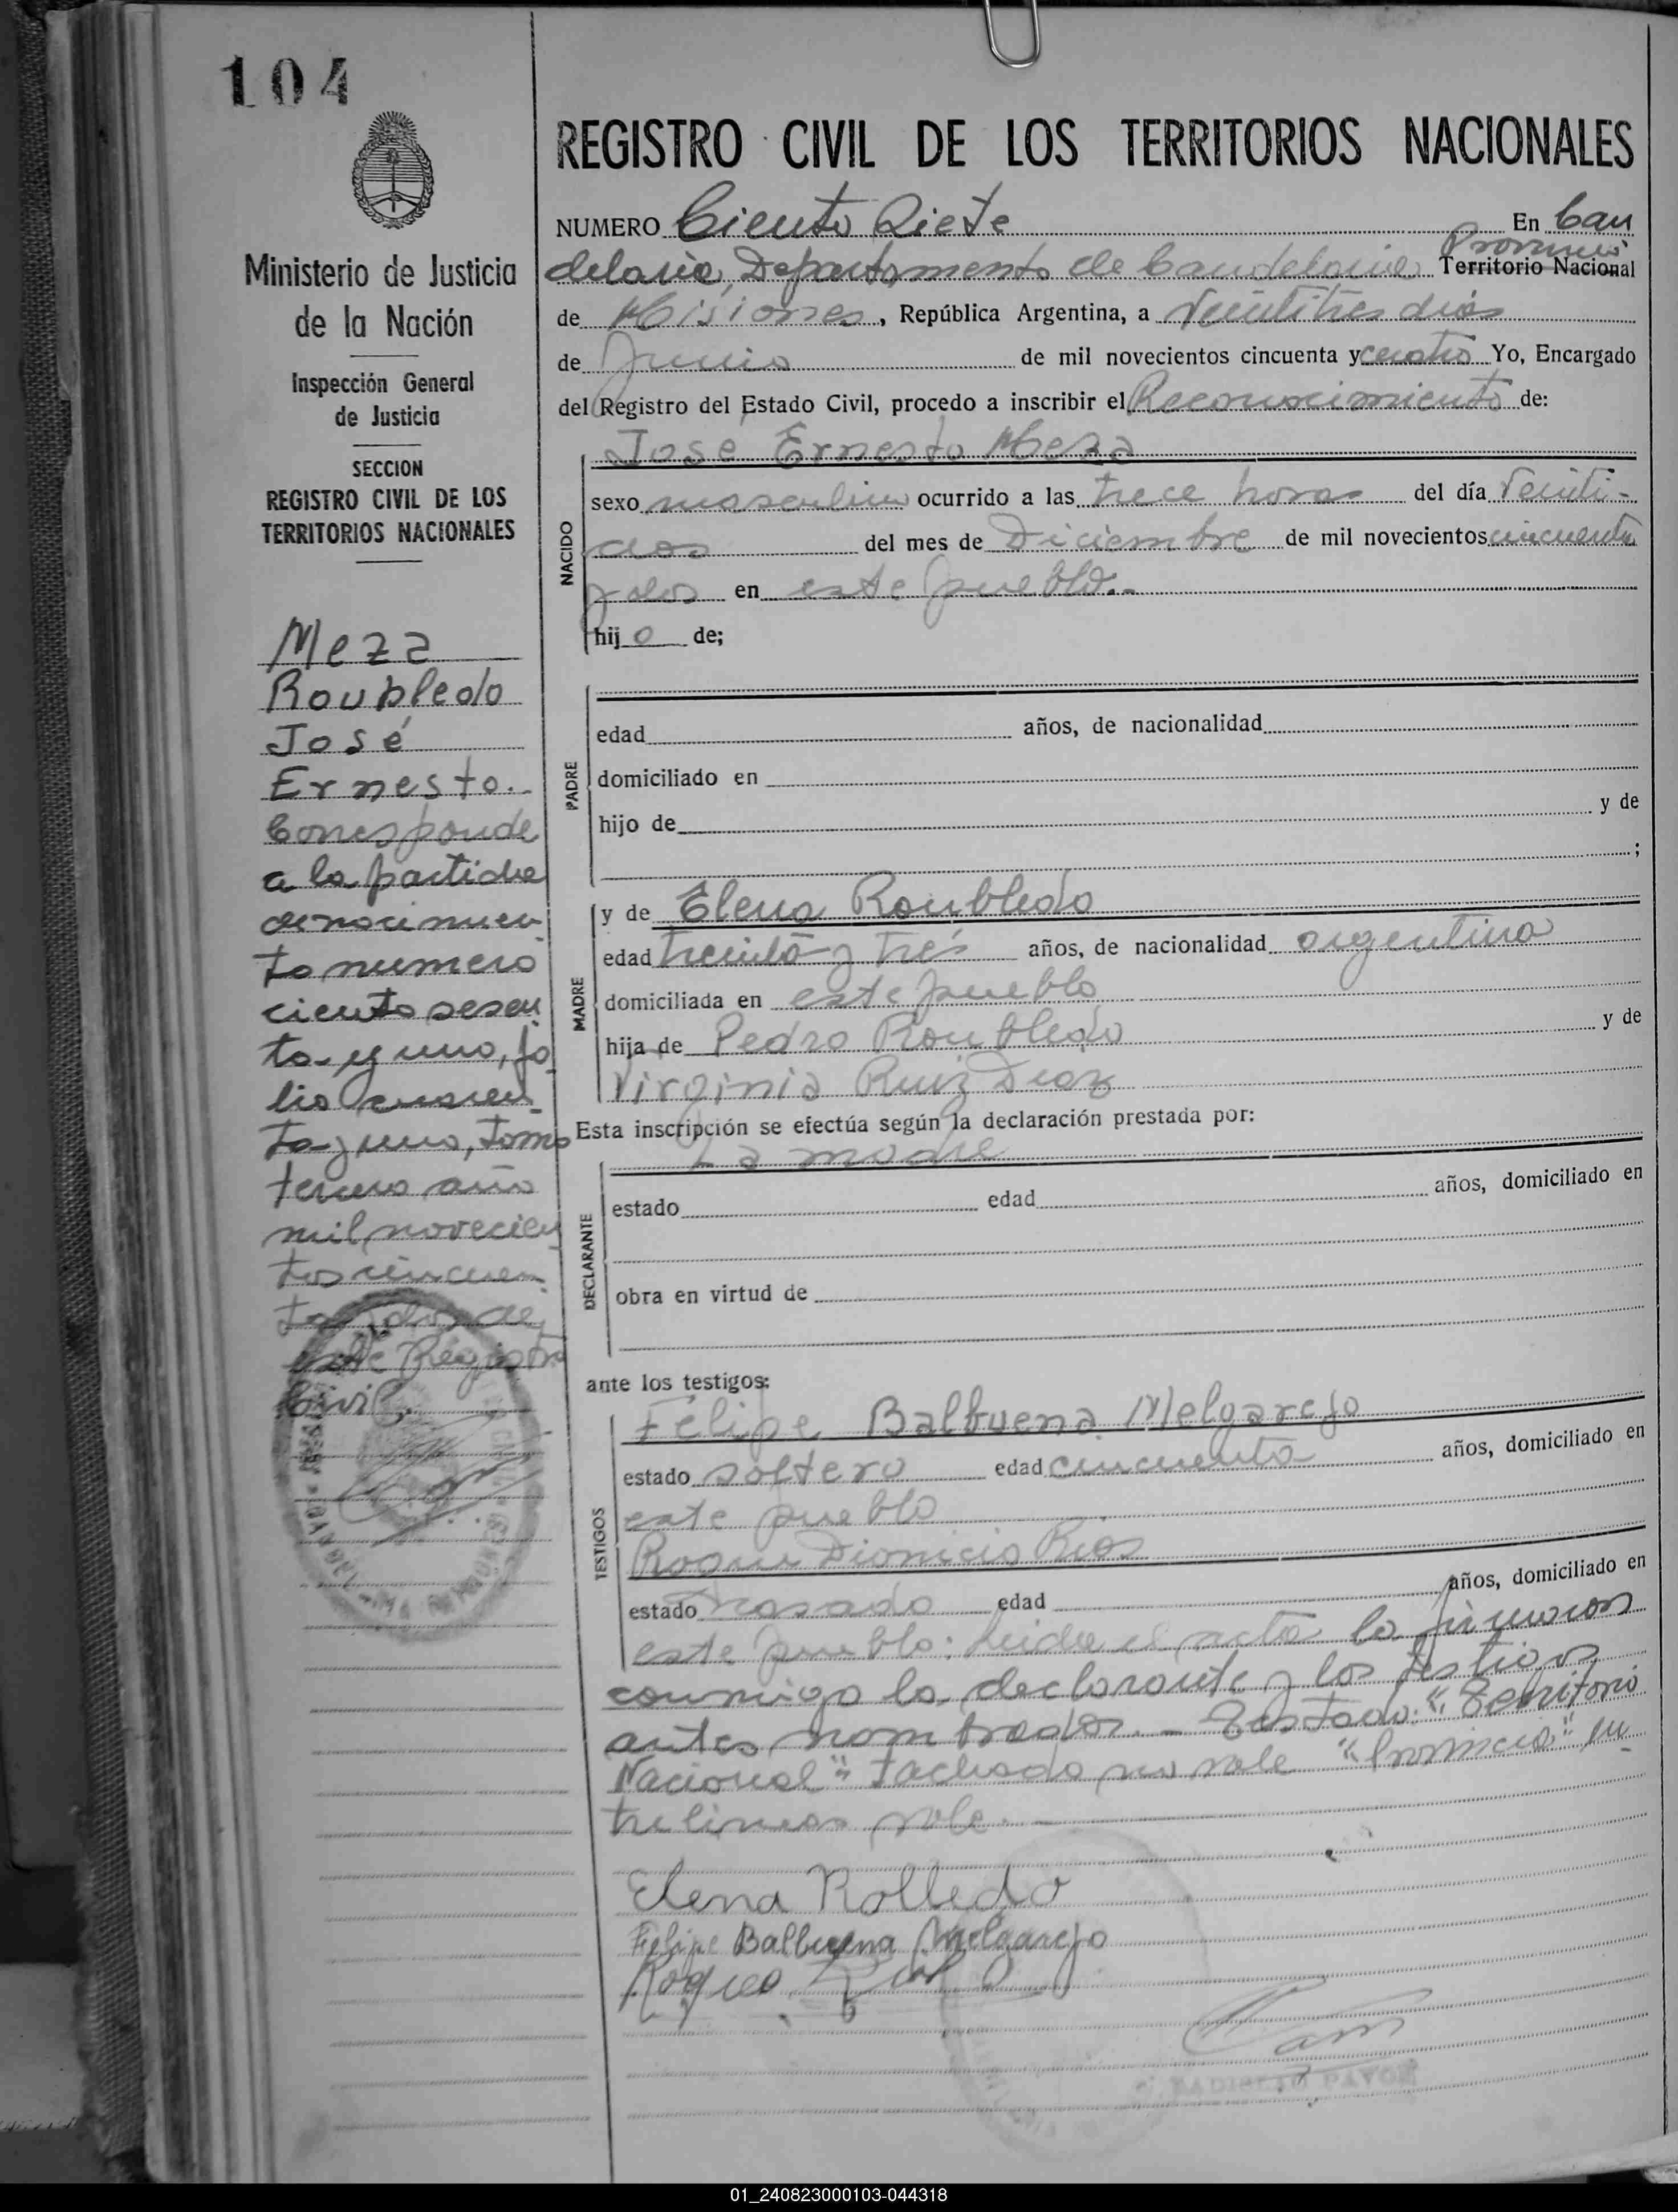 104
REGISTRO CIVIL DE LOS TERRITORIOS NACIONALES
NUMERO Ciento Siete En Can
Provincia
delaria, Departamento de Candelaria Territorio Nacional
de Misiones, República Argentina, a Veintitres dias
de Junio de mil novecientos cincuenta y cuatro Yo, Encargado
del Registro del Estado Civil, procedo a inscribir el Reconocimiento de:
José Ernesto Meza
NACIDO
sexo masculino ocurrido a las trece horas del día Veinti-
dos del mes de Diciembre de mil novecientos cincuenta
y dos en este pueblo.-
hijo de;
PADRE
edad años, de nacionalidad
domiciliado en
hijo de y de
;
MADRE
y de Elena Roubledo
edad treinta y tres años, de nacionalidad argentina
domiciliada en este pueblo
hija de Pedro Roubledo y de
Virginia Ruiz Diaz
Esta inscripción se efectúa según la declaración prestada por:
La madre
DECLARANTE
estado edad años, domiciliado en
obra en virtud de
ante los testigos:
TESTIGOS
Felipe Balbuena Melgarejo
estado soltero edad cincuenta años, domiciliado en
este pueblo
Roque Dionicio Rios
estado casado edad años, domiciliado en
este pueblo: Leida el acta la firmaron
conmigo la declarante y los testigos
antes nombrados.- Testado: "Territorio
Nacional" tachado no vale "Provincia" en-
tre lineas vale.
Elena Rolledo
Felipe Balbuena Melgarejo
Roque Rios
LADISLAO PAVON
Ministerio de Justicia
de la Nación
Inspección General
de Justicia
SECCION
REGISTRO CIVIL DE LOS
TERRITORIOS NACIONALES
Meza
Roubledo
José
Ernesto.
Corresponde
a la partida
de nacimien
to numero
ciento sesen
ta y uno, fo
lio cuaren
ta y uno, tomo
tercero año
mil novecien
tos cincuen
ta y dos de
este Registro
Civil.
01_240823000103-044318